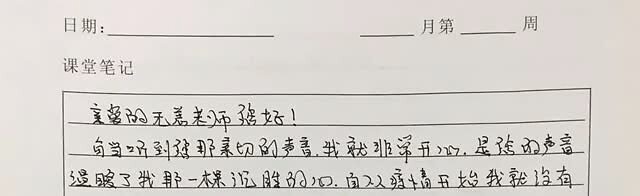 日期: 月第 周
课堂笔记
亲爱的无羔老师您好！
自当听到您那亲切的声音，我就非常开心，是您的声音
温暖了我那一棵沉睡的心，自从疫情开始我就没有